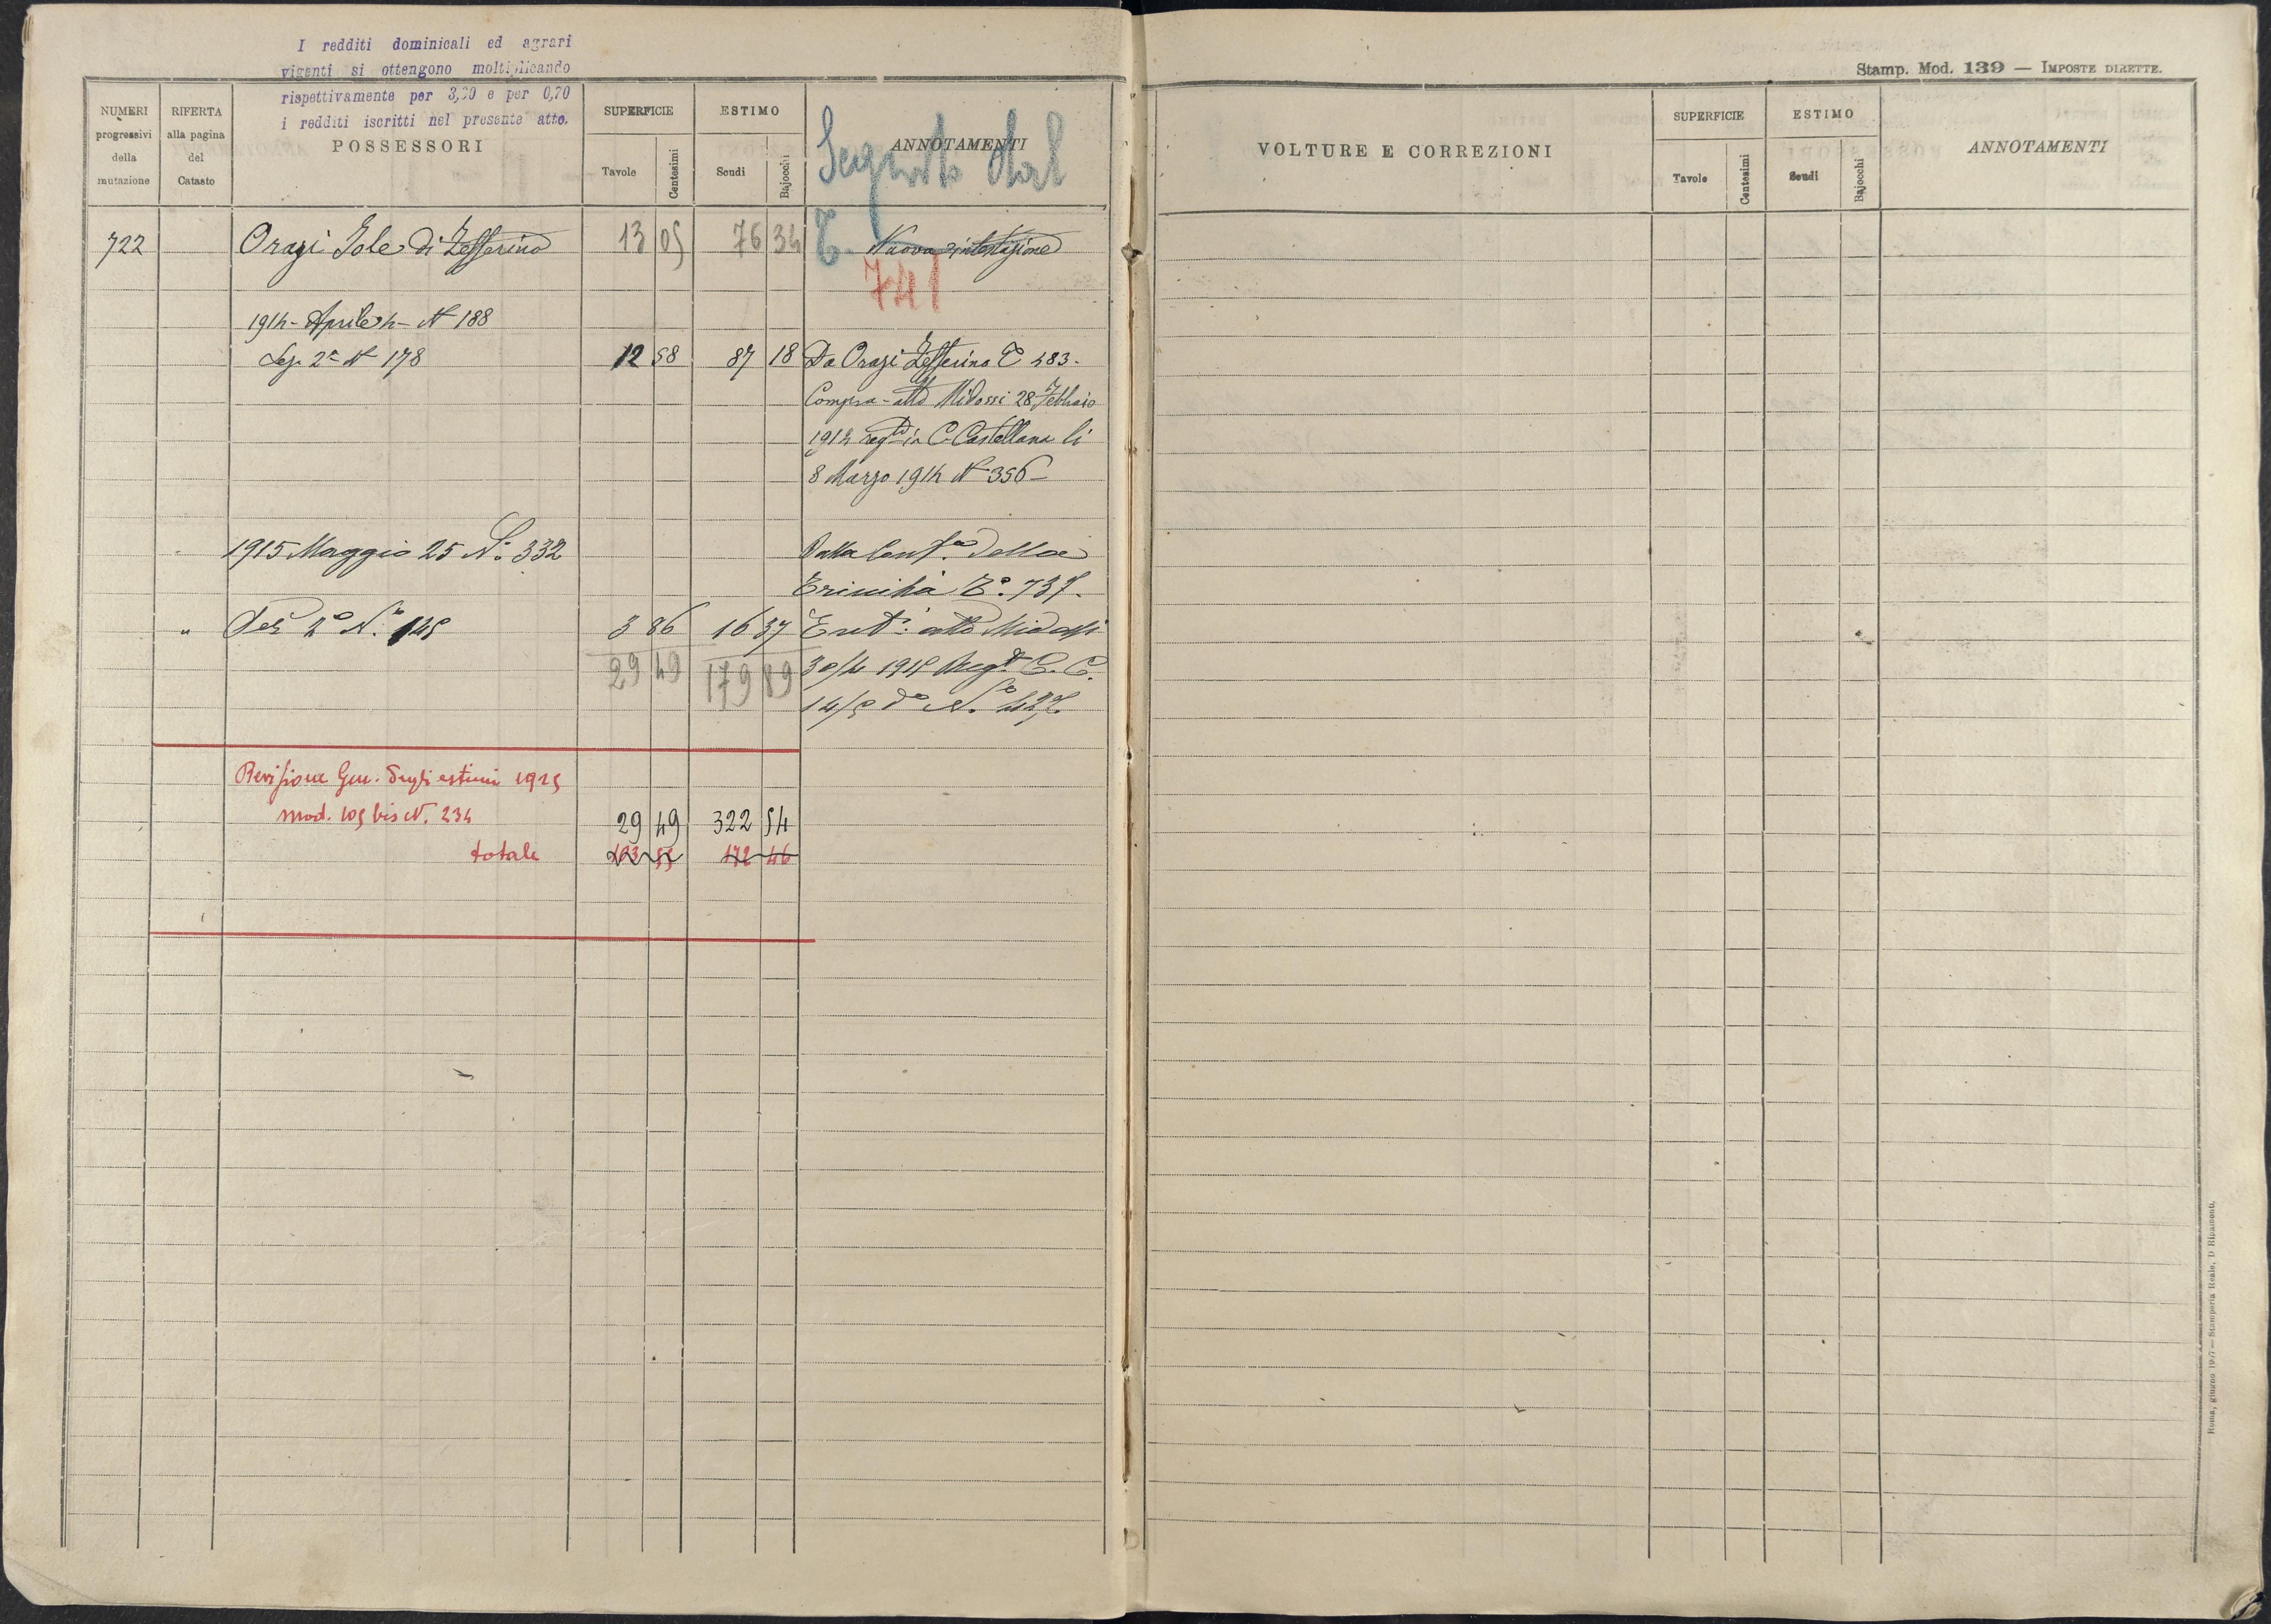 I redditi dominicali ed agrari
vigenti si ottengono moltiplicando
rispettivamente per 3,20 e per 0,70
i redditi iscritti nel presente atto.
NUMERI progressivi della mutazione
RIFERTA alla pagina del Catasto
POSSESSORI
SUPERFICIE
Tavole
Centesimi
ESTIMO
Scudi
Bajocchi
ANNOTAMENTI
Seguito dal
T.
741
722 Orazi Iole di Zefferino 13 05 76 34 Nuova intestazione
1914 - Aprile 4 - N 188
Sez. 2ª N 178 12 58 87 18 Da Orazi Zefferino T 483.
Compra - atto Midossi 28 Febbraio
1914 regto in C. Castellana li
8 Marzo 1914 N 356
1915 Maggio 25 N. 332 Dalla della
Trinità 737.
" Sez 2ª N. 145 3 86 16 37 atto Midossi
29 49 179 89 30/4 1915 Regto C. C.
14/5 do N.
Revisione Gen. degli estimi 1925
mod. 105 bis N. 234 29 49 322 54
totale 172 46
Stamp. Mod. 139 — IMPOSTE DIRETTE.
VOLTURE E CORREZIONI
SUPERFICIE
Tavole
Centesimi
ESTIMO
Scudi
Bajocchi
ANNOTAMENTI
Roma, giugno — Stamperia Reale, D. Ripamonti.